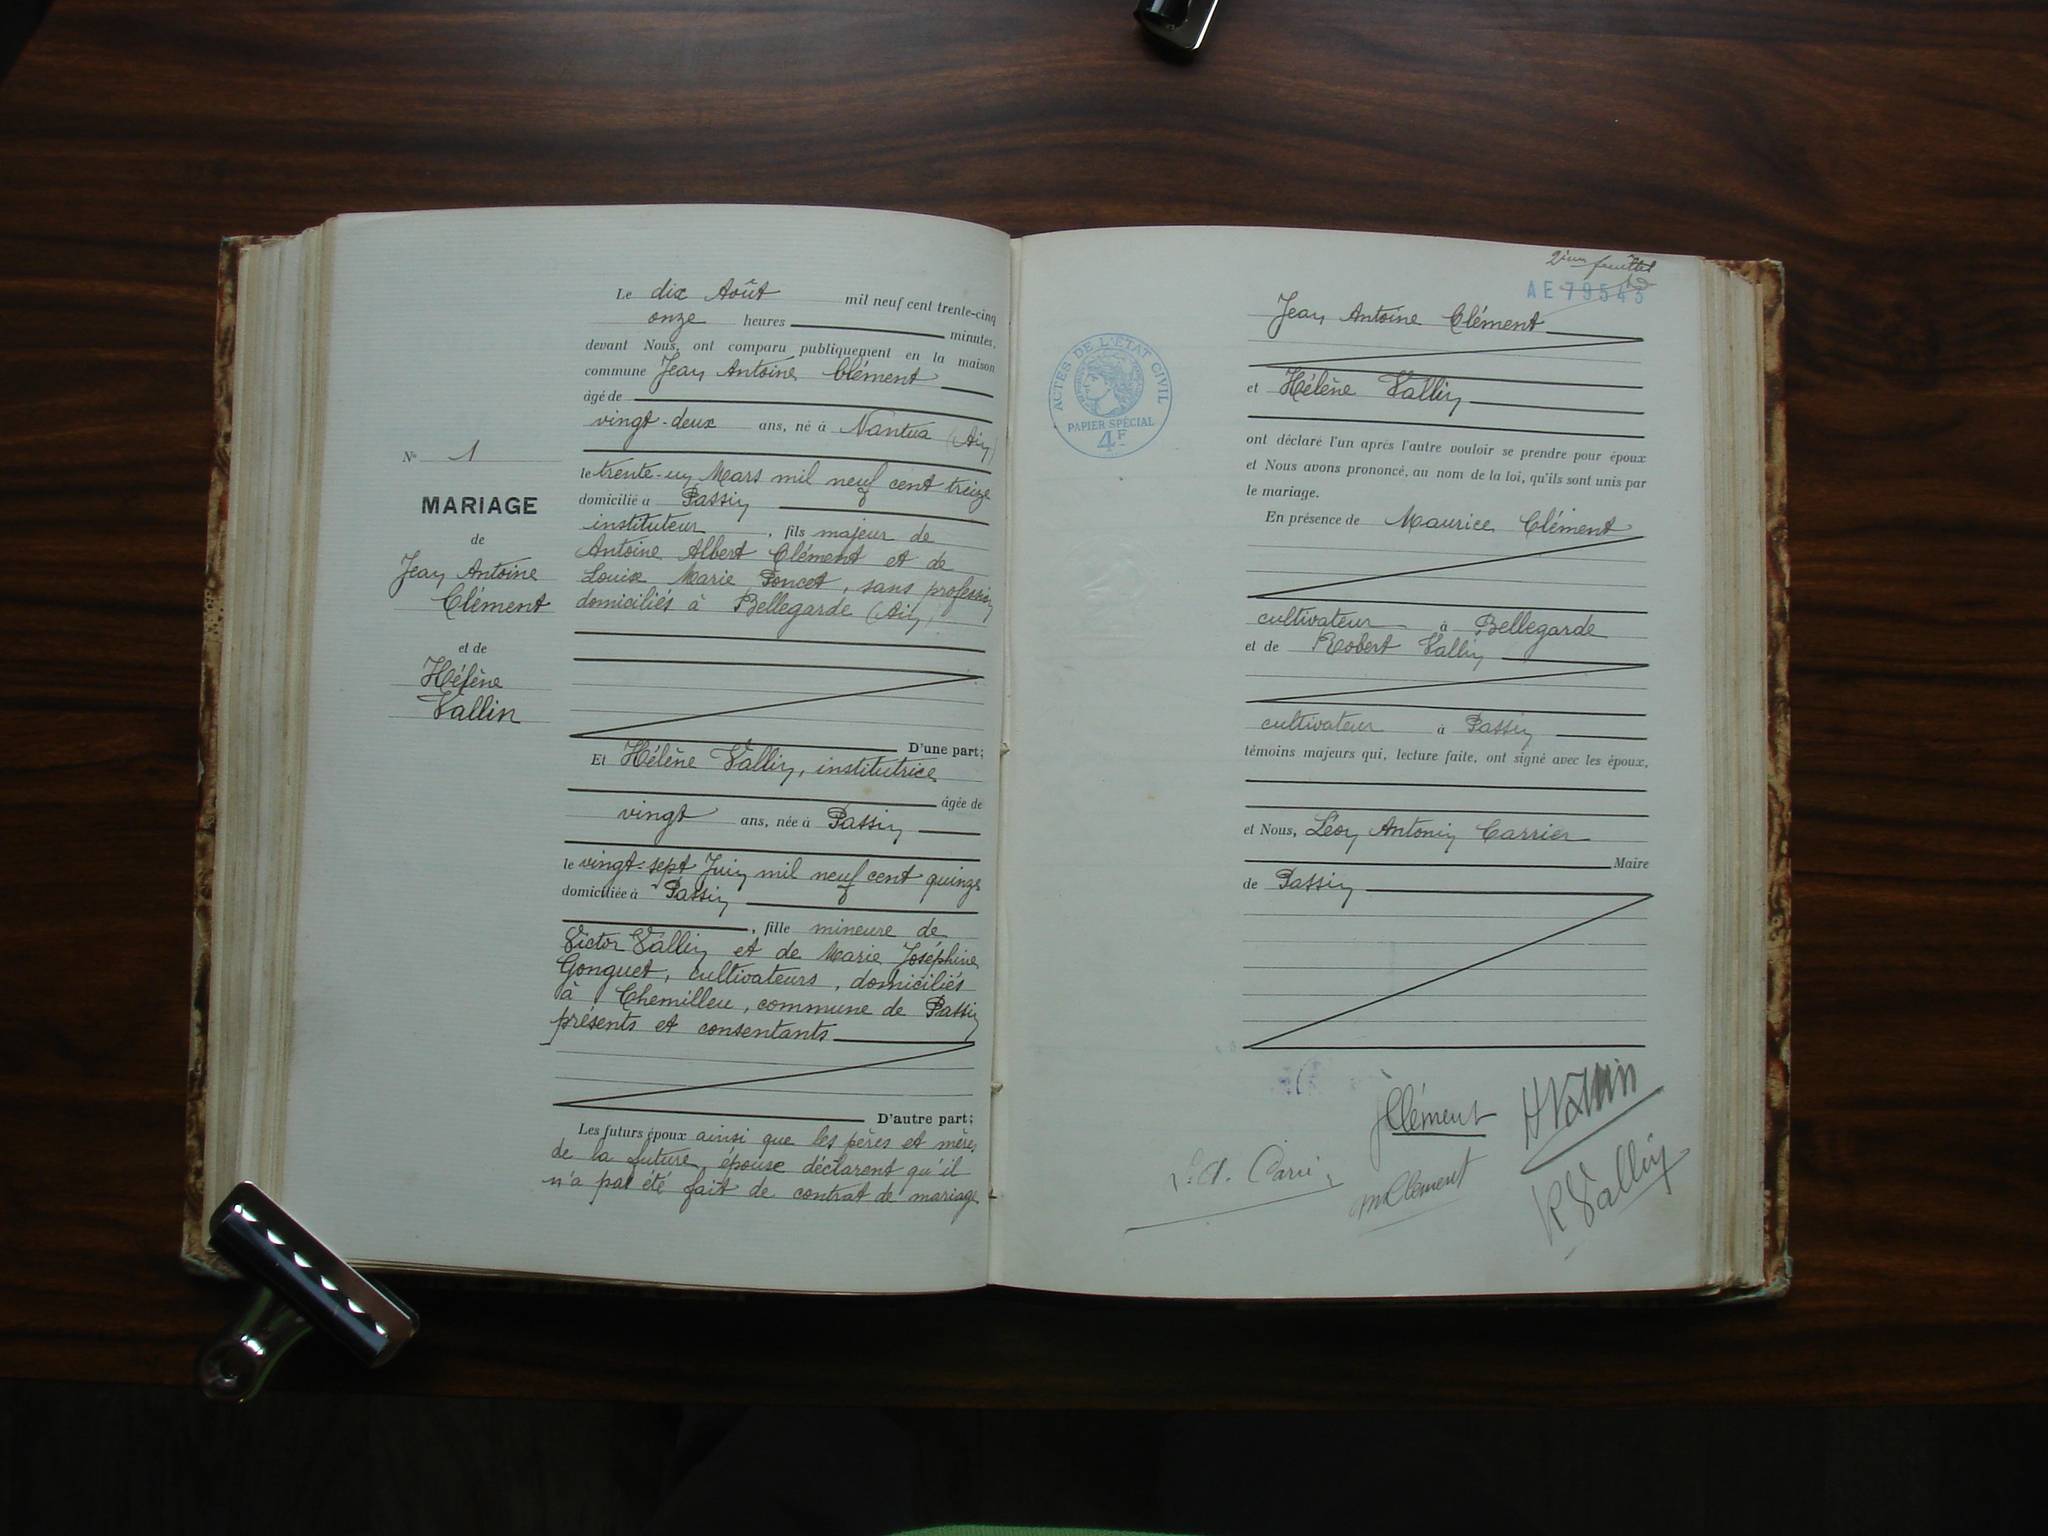 Le dix Août mil neuf cent trente-cinq
onze heures minutes,
devant Nous, ont comparu publiquement en la maison
commune Jean Antoine Clément
âgé de
vingt-deux ans, né à Nantua (Ain)
le trente-un Mars mil neuf cent treize
domicilié à Passin
instituteur, fils majeur de
Antoine Albert Clément et de
Louise Marie Poncet, sans profession
domiciliés à Bellegarde (Ain)
D'une part;
Et Hélène Vallin, institutrice
âgée de
vingt ans, née à Passin
le vingt-sept Juin mil neuf cent quinze
domiciliée à Passin
, fille mineure de
Victor Vallin et de Marie Joséphine
Gonguet, cultivateurs, domiciliés
à Chemilleu, commune de Passin
présents et consentants
D'autre part;
Les futurs époux ainsi que les pères et mères
de la future épouse déclarent qu'il
n'a pas été fait de contrat de mariage
N° 1
MARIAGE
de
Jean Antoine
Clément
et de
Hélène
Vallin
2ième feuillet
AE 79543
ACTES DE L'ÉTAT CIVIL
PAPIER SPÉCIAL
4F
Jean Antoine Clément
et Hélène Vallin
ont déclaré l'un après l'autre vouloir se prendre pour époux
et Nous avons prononcé, au nom de la loi, qu'ils sont unis par
le mariage.
En présence de Maurice Clément
cultivateur à Bellegarde
et de Robert Vallin
cultivateur à Passin
témoins majeurs qui, lecture faite, ont signé avec les époux,
et Nous, Léon Antonin Carrier
Maire
de Passin
JClément
HVallin
mClément
RVallin